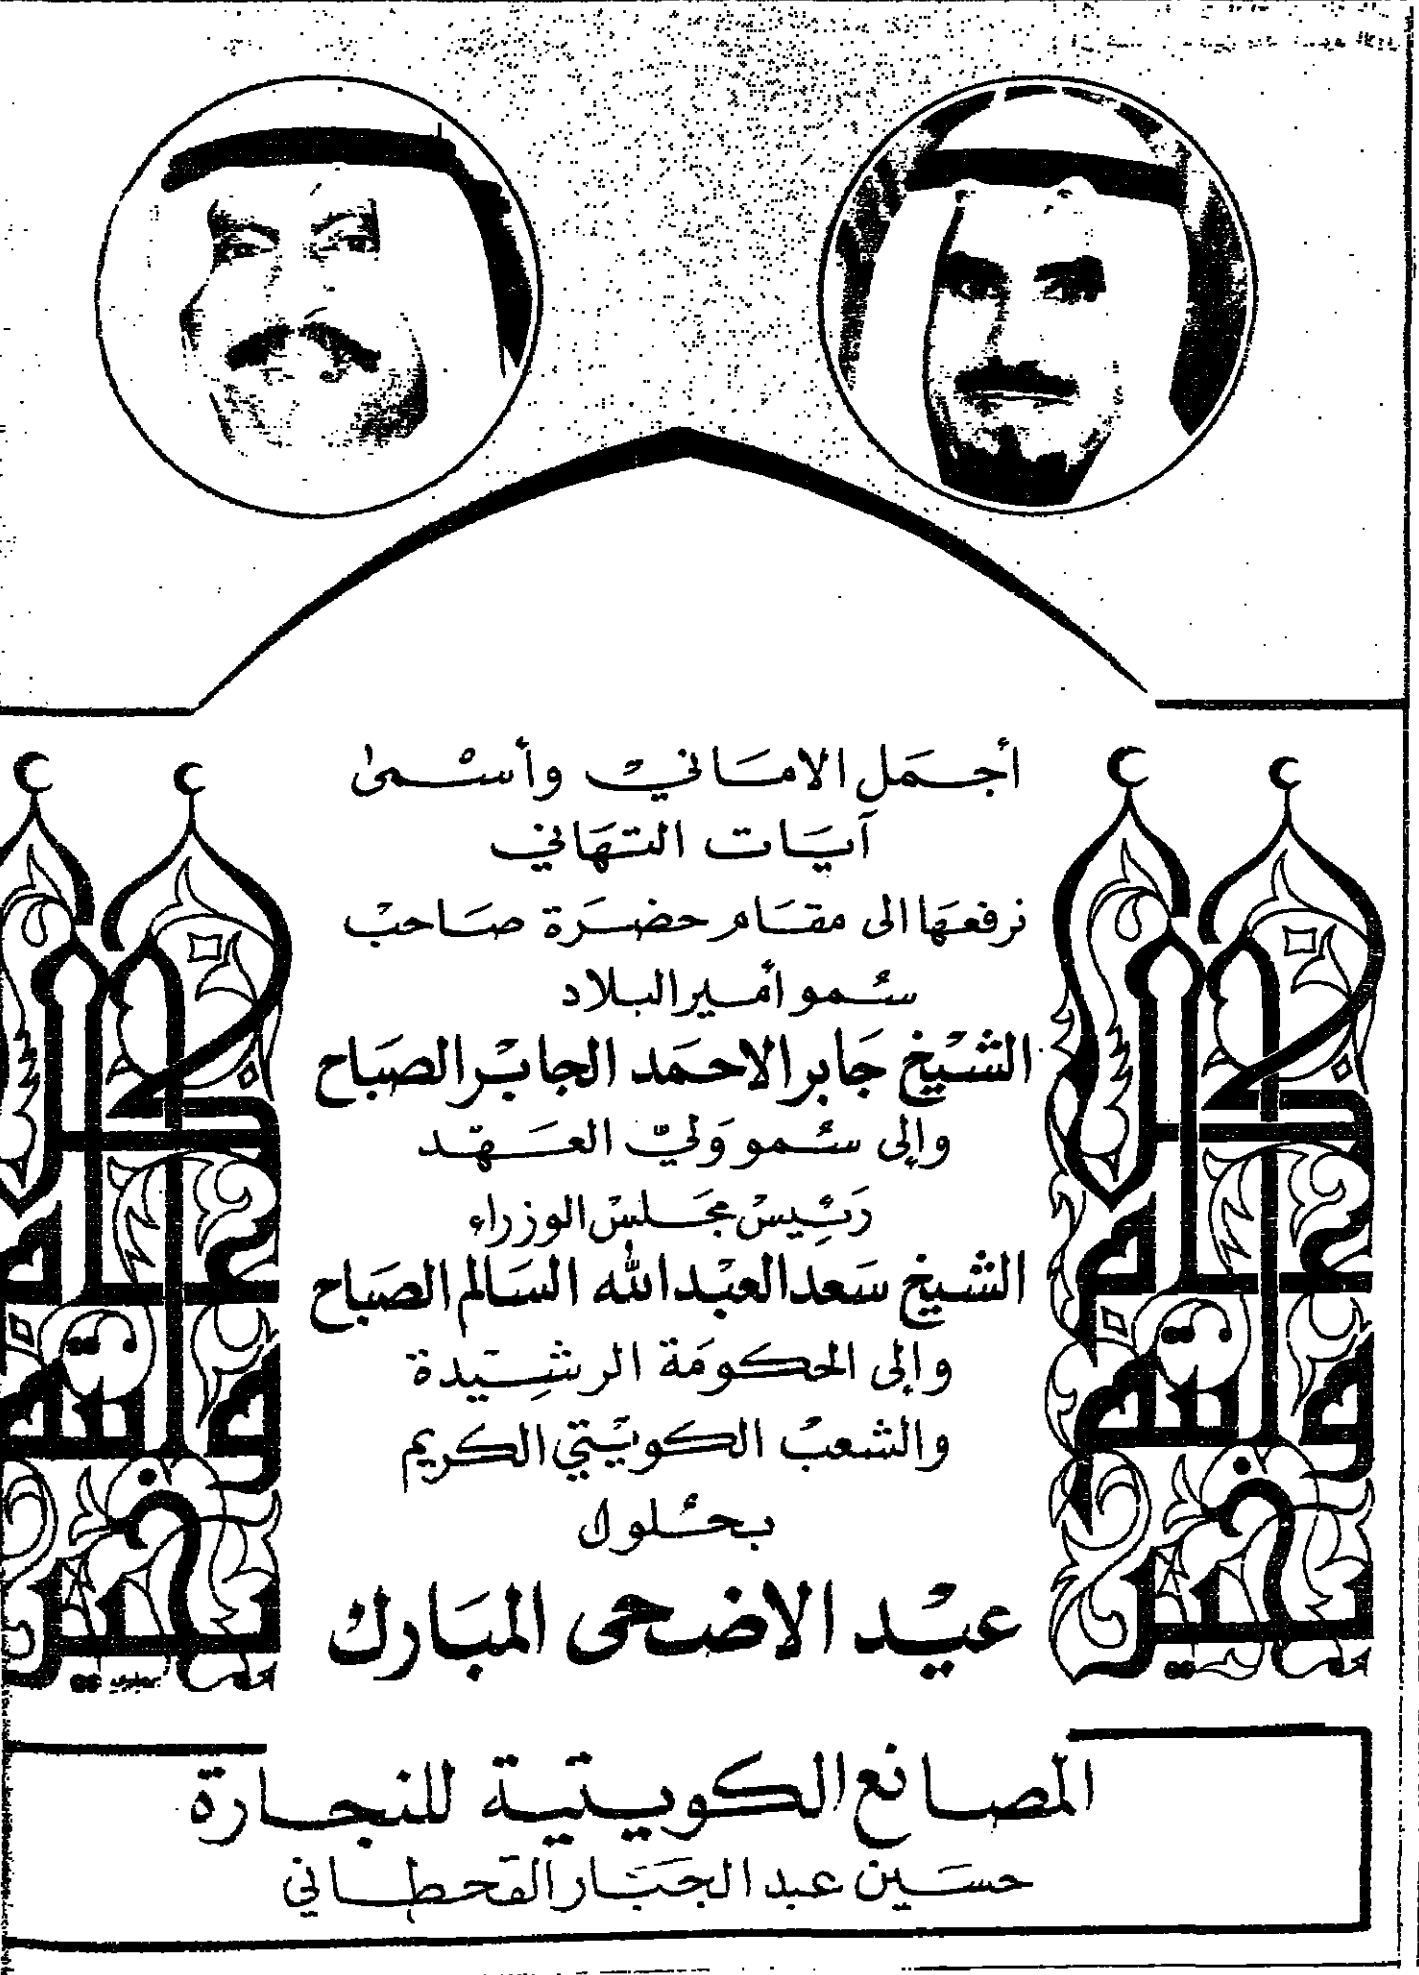 أجمل الاماني وأسمى
آيات التهاني
نرفعها الى مقام حضرة صاحب
سمو أمير البلاد
الشيخ جابر الاحمد الجابر الصباح
وإلى سمو ولي العهد
رئيس مجلس الوزراء
الشيخ سعد العبد الله السالم الصباح
وإلى الحكومة الرشيدة
والشعب الكويتي الكريم
بحلول
عيد الاضحى المبارك
المصانع الكويتية للنجارة
حسين عبد الجبار القحطاني